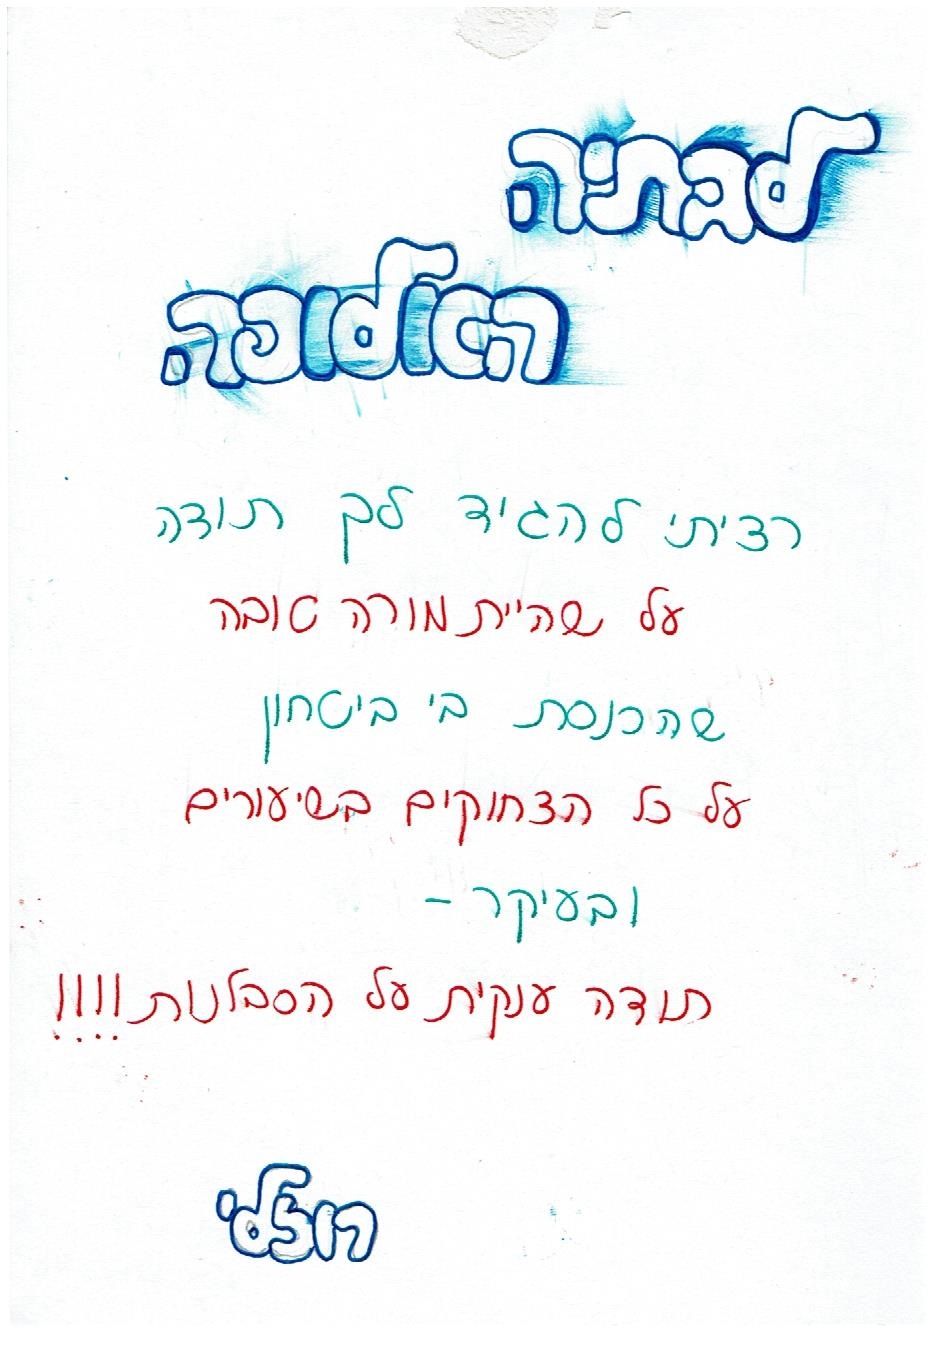 לבתיה
האלופה
רציתי להגיד לך תודה
על שהיית מורה טובה
שהכנסת בי ביטחון
על כל הצחוקים בשיעורים
ובעיקר –
תודה ענקית על הסבלנות!!!!